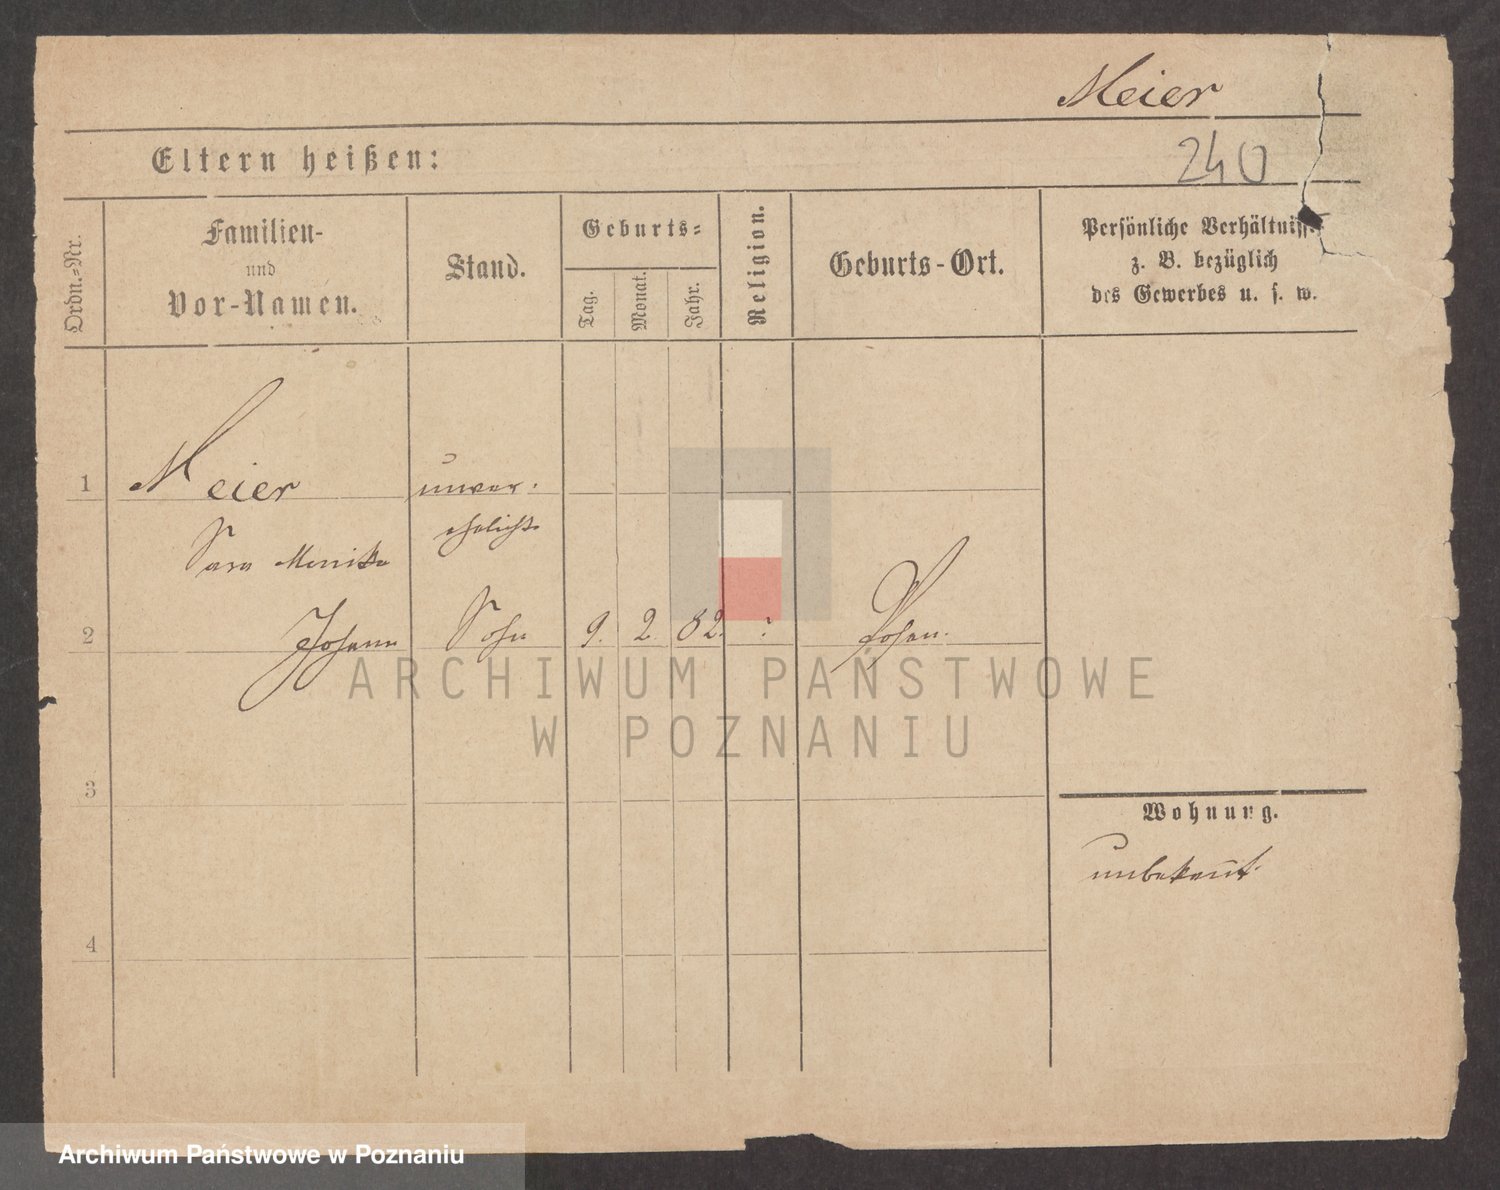 Meier
240
Eltern heißen:
Ordn.-Nr.
Familien-
und
Vor-Namen.
Stand.
Geburts-
Tag.
Monat.
Jahr.
Religion.
Geburts-Ort.
Persönliche Verhältniss
z. B. bezüglich
des Gewerbes u. s. w.
1 Meier unver-
ehelicht
Sara Monika
2 Johann Sohn 9. 2. 82. ? Posen.
3
4
Wohnung.
unbekannt
ARCHIWUM PAŃSTWOWE
W POZNANIU
Archiwum Państwowe w Poznaniu